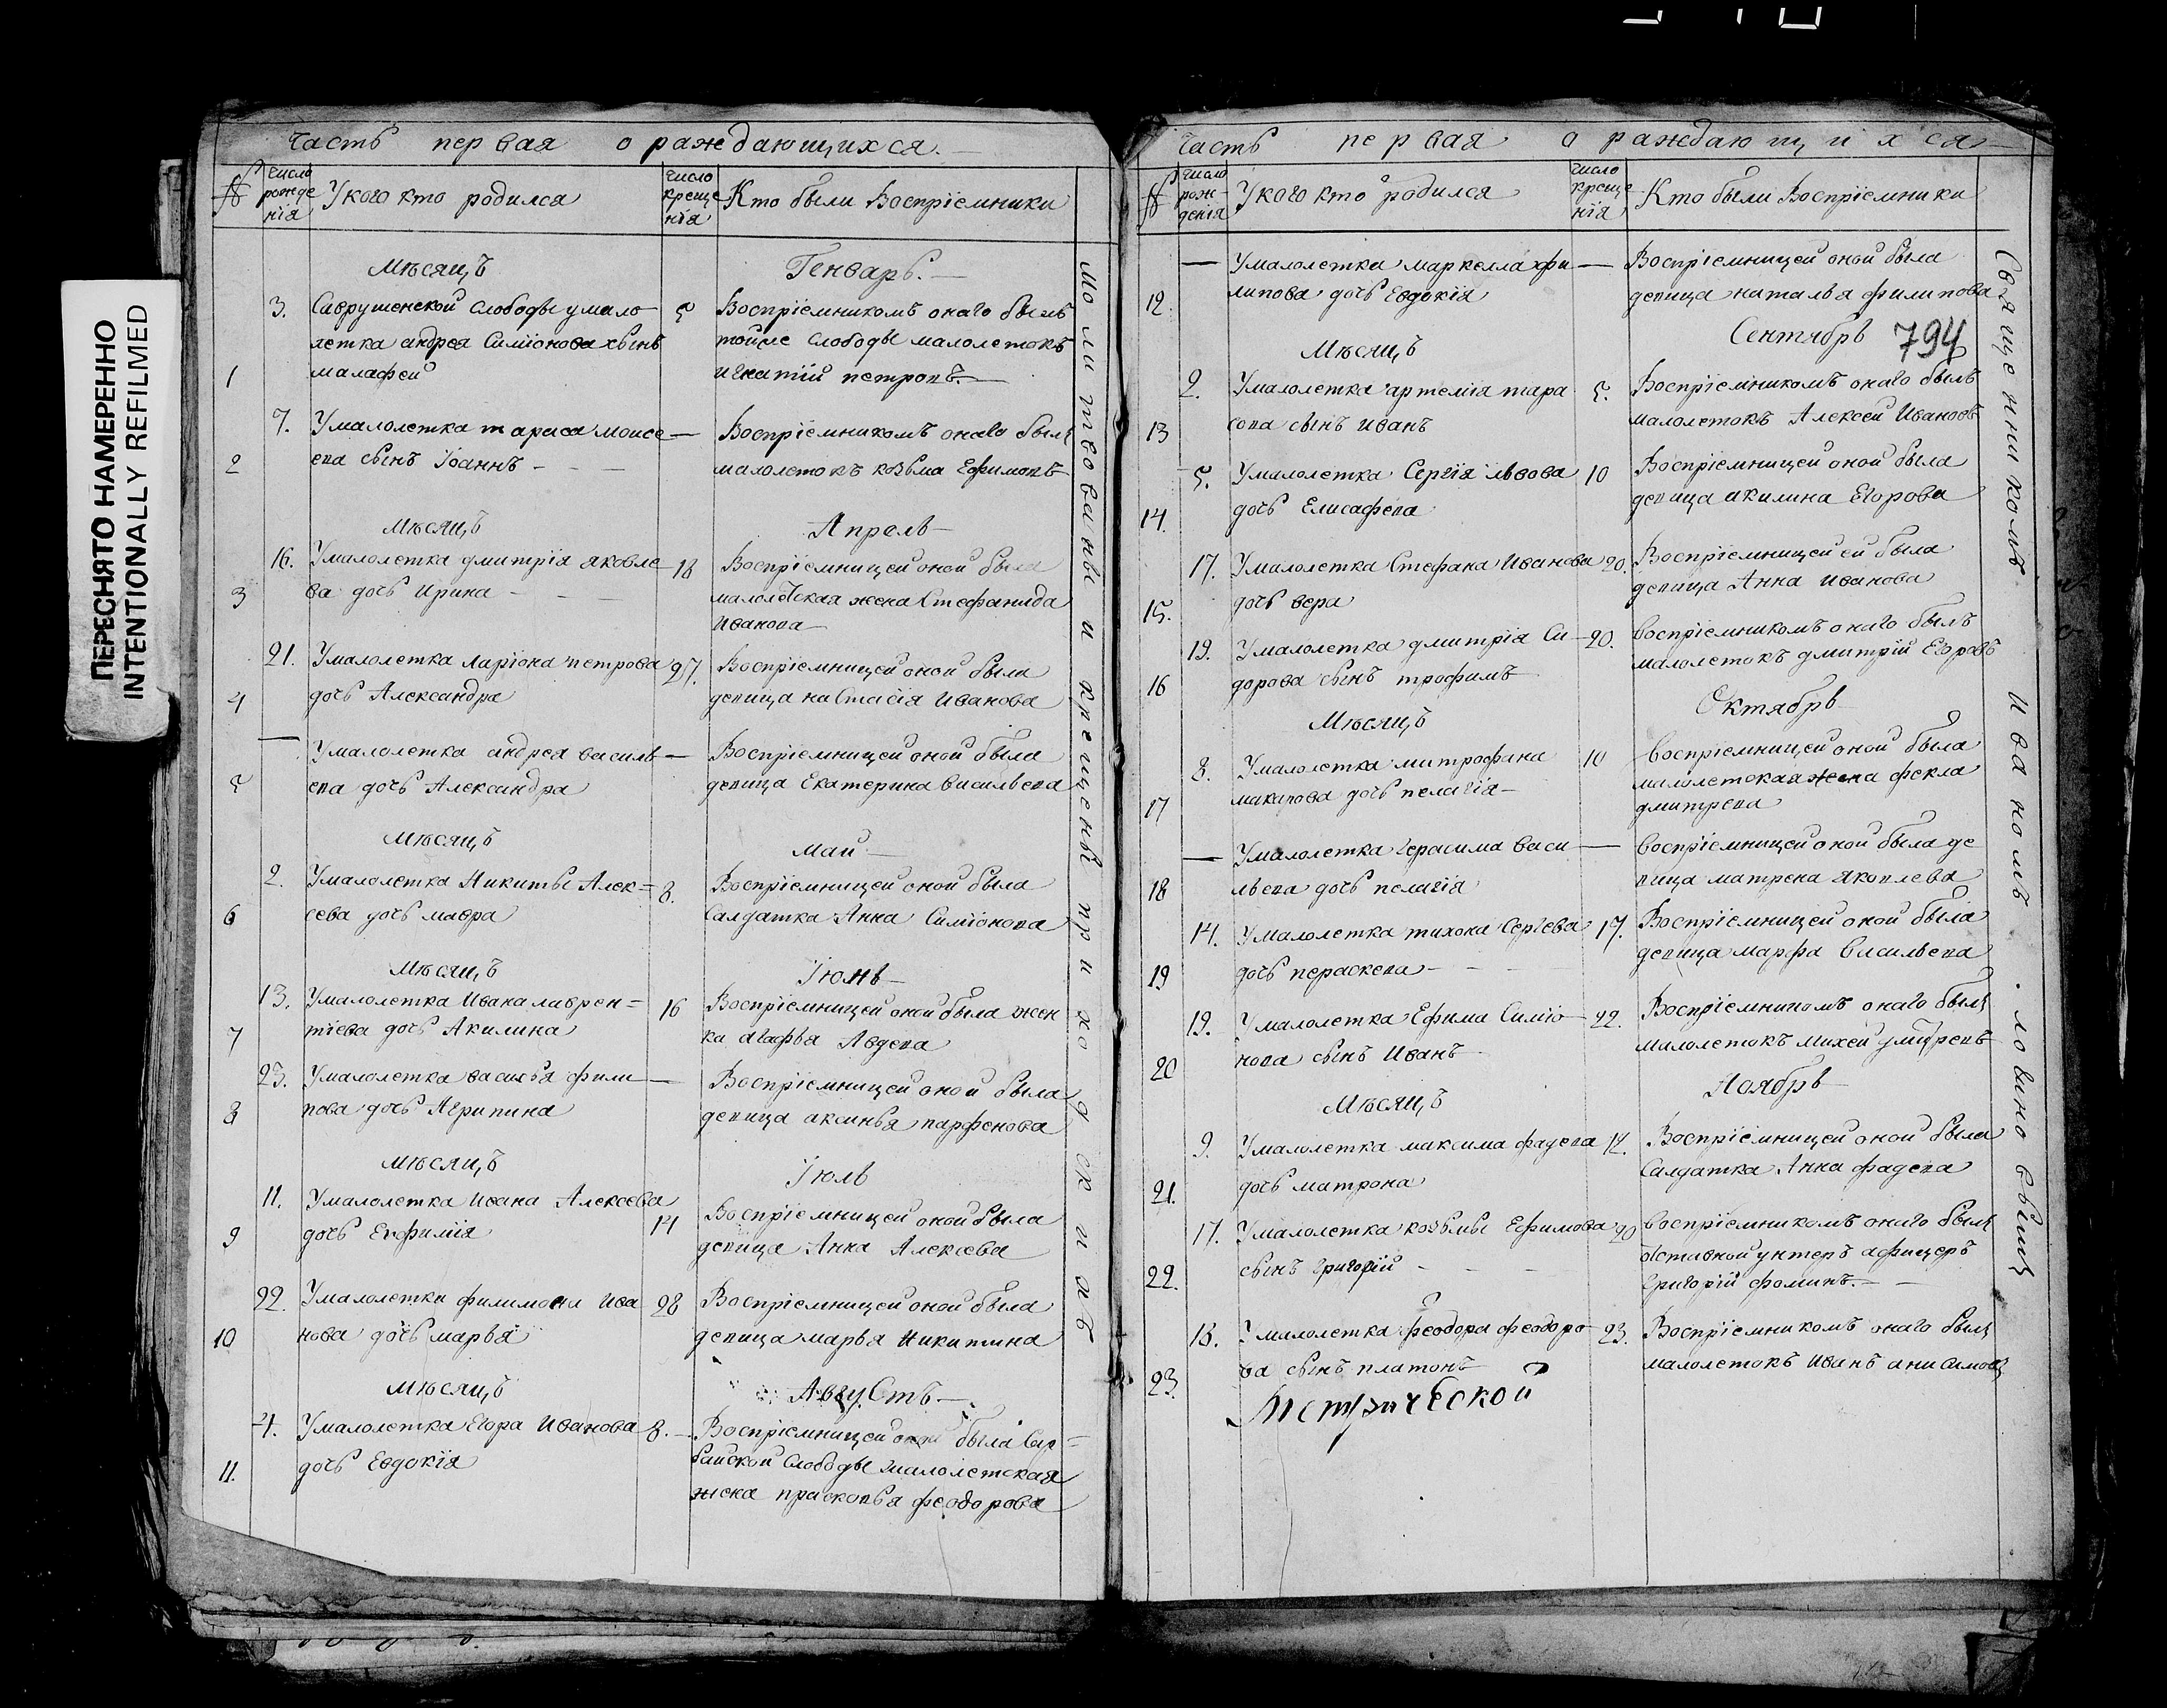 ПЕРЕСНЯТО НАМЕРЕННО
INTENTIONALLY REFILMED
Часть первая о раждающихся.
№ число рожденія У кого кто родился число крещенія Кто были Воспріемники
Мѣсяцъ Генварь.
3. Саврушенской слободы у мало 5 Воспріемникомъ онаго былъ
летка андрея Симіонова сынъ тойже слободы малолетокъ
1 малафей игнатій петровъ.
7. У малолетка тараса моисе — Воспріемникомъ онаго былъ
2 ева сынъ Іоаннъ - - - малолетокъ козьма Ефимовъ
Мѣсяцъ Апрель
16. У малолетка дмитрія яковле 18 Воспріемницей оной была
3 ва дочь Ирина - - - малолетская жена Стефанида
Иванова
21. У малолетка Ларіона петрова 27. Воспріемницей оной была
4 дочь Александра девица настасія Иванова
— У малолетка андрея василь — Воспріемницей оной была
5 ева дочь Александра девица Екатерина васильева
Мѣсяцъ май
2. У малолетка Никиты Алек= 8. Воспріемницей оной была
6 сева дочь мавра Салдатка Анна Симіонова
Мѣсяцъ Іюнь
13. У малолетка Ивана лаврен= 16 Воспріемницей оной была жен
7 тіева дочь Акилина ка агафья Авдева
23. У малолетка василья фили — Воспріемницей оной была
8 пова дочь Агрипина девица аксинья парфенова
Мѣсяцъ Іюль
11. У малолетка Ивана Алексева 14 Воспріемницей оной была
9 дочь Евфимія девица Анна Алексева
22. У малолетка филимона Ива 28 Воспріемницей оной была
10 нова дочь марья девица марья Никитина
Мѣсяцъ АвгуСтъ
4. У малолетка Егора Иванова 8. Воспріемницей оной была Сар=
11. дочь Евдокія байской Слободы малолетская
жена прасковья феодорова
Молитвовавъ и крещенъ приходя
Часть первая о раждающихся
№ число рожденія У кого кто родился число крещенія Кто были Воспріемники
— У малолетка маркелла фи — Воспріемницей оной была
12. липова дочь Евдокія девица наталья филипова
794
Мѣсяцъ Сентябрь
2. У малолетка артемія тара 5. Воспріемникомъ онаго былъ
13 сова сынъ иванъ малолетокъ Алексей Ивановъ
5. У малолетка Сергія львова 10 Воспріемницей оной была
14. дочь Елисафева девица акилина Егорова
17. У малолетка Стефана Иванова 20. Воспріемницей ей была
15. дочь вера девица Анна иванова
19. У малолетка дмитрія Си 20. воспріемникомъ онаго былъ
16 дорова сынъ трофимъ малолетокъ дмитрій Егоровъ
Мѣсяцъ Октябрь
8. У малолетка митрофана 10 воспріемницей оной была
17 макарова дочь пелагія малолетская жена фекла
дмитрева
— У малолетка герасима васи — воспріемницей оной была де
18 льева дочь пелагія вица матрена яковлева
14. У малолетка тихона Сергева 17. Воспріемницей оной была
19 дочь пераскева - - - девица марфа васильева
19. У малолетка Ефима Симіо 22. Воспріемникомъ онаго былъ
20 нова сынъ Иванъ малолетокъ михей дмитревъ
Мѣсяцъ Ноябрь
9. У малолетка максима фадева 12. Воспріемницей оной была
21. дочь матрона Салдатка Анна фадева
17. У малолетка козьмы Ефимова 20 воспріемникомъ онаго былъ
22. сынъ григорій - - - отставной унтеръ афицеръ
григорій фоминъ.
18. У малолетка феодора феодоро 23. Воспріемникомъ онаго былъ
23. ва сынъ платонъ малолетокъ Иванъ анисимовъ
Метрической
Священникомъ Иваномъ